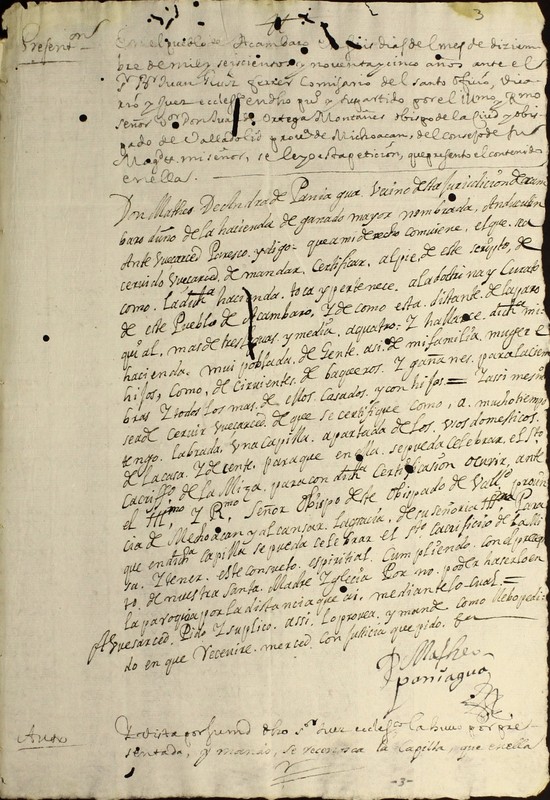 3
Presenton
En el pueblo de Acambaro en seis dias del mes de diziem
bre de mil y seiscientos y noventa y cinco años ante el
Sr Br Juan Comisario del santo oficio, Vica
rio y Juez eccleco en dho pueo y su partido por el illmo y Rmo
señor Dor Don Juan de Ortega Montañes obispo de la Ciud y obis
pado de Valladolid provia de Michoacan, del consejo de su
Magd, mi señor, se leyo esta peticion, que presento el contenido
en ella.
Don Matheo De de Pania gua. Vaino desta Jurisdicion de acam
baro dueño de la hacienda de ganado mayor nombrada,
Ante Vuesarced Paresco. y digo: que a mi derecho combiene, el que. sea
ceruido Vuesarced. de mandar. Certificar. alpie, de este scripto, de
como. la dicha hacienda. toca y pertenece. a la dotrina y Curato
de este Pueblo de Acambaro, Y de como esta. distante. de la paro
quial. mas de tres leguas. y media, a quatro: Y hallarce dicha mi
hacienda. mui poblada. de Gente. asi. de mi familia, muger e
hijos, como, de Ciruientes. de baqueros. Y gañanes, para laciem
bras Y todos los mas. de ellos. Casados. y con hijos = Y assi mesmo
sea de Ceruir Vuesarced. de que se certifique como, a. mucho tiempo
tengo. labrada. vna Capilla. apartada de los. vsos domesticos.
de la casa. Y decente. para que en ella. se pueda Celebrar. el Sto
Sacrifiso de la Miza. para con dicha Certificasion ocurir, ante
el Illmo. Y Rmo, Señor Obispo deste Obispado de Valld provin
cia de Mechoacan y alcansar. la gracia, de su señoria Illma Para
que en dicha Capilla se pueda celebrar el sto sacrificio de la Mi
sa. Y tener. este consuelo. espiritual. Cumpliendo. con el presep
to. de nuestra Santa. Madre Yglecia Por no. poder hacerlo en
la paroquia por la distancia que ai. mediante lo cual =
A Vuesarced. Pido Y suplico. assi. lo prouea. y mande. como llebo pedi
do en que Receuire. merced. con justicia que pido. &a
D Matheo
paniagua
Auto
Y vista por su md dho Sr Juez eccleco la huuo por pre
sentada, y mando, se reconosca la Capilla que en ella
-3-